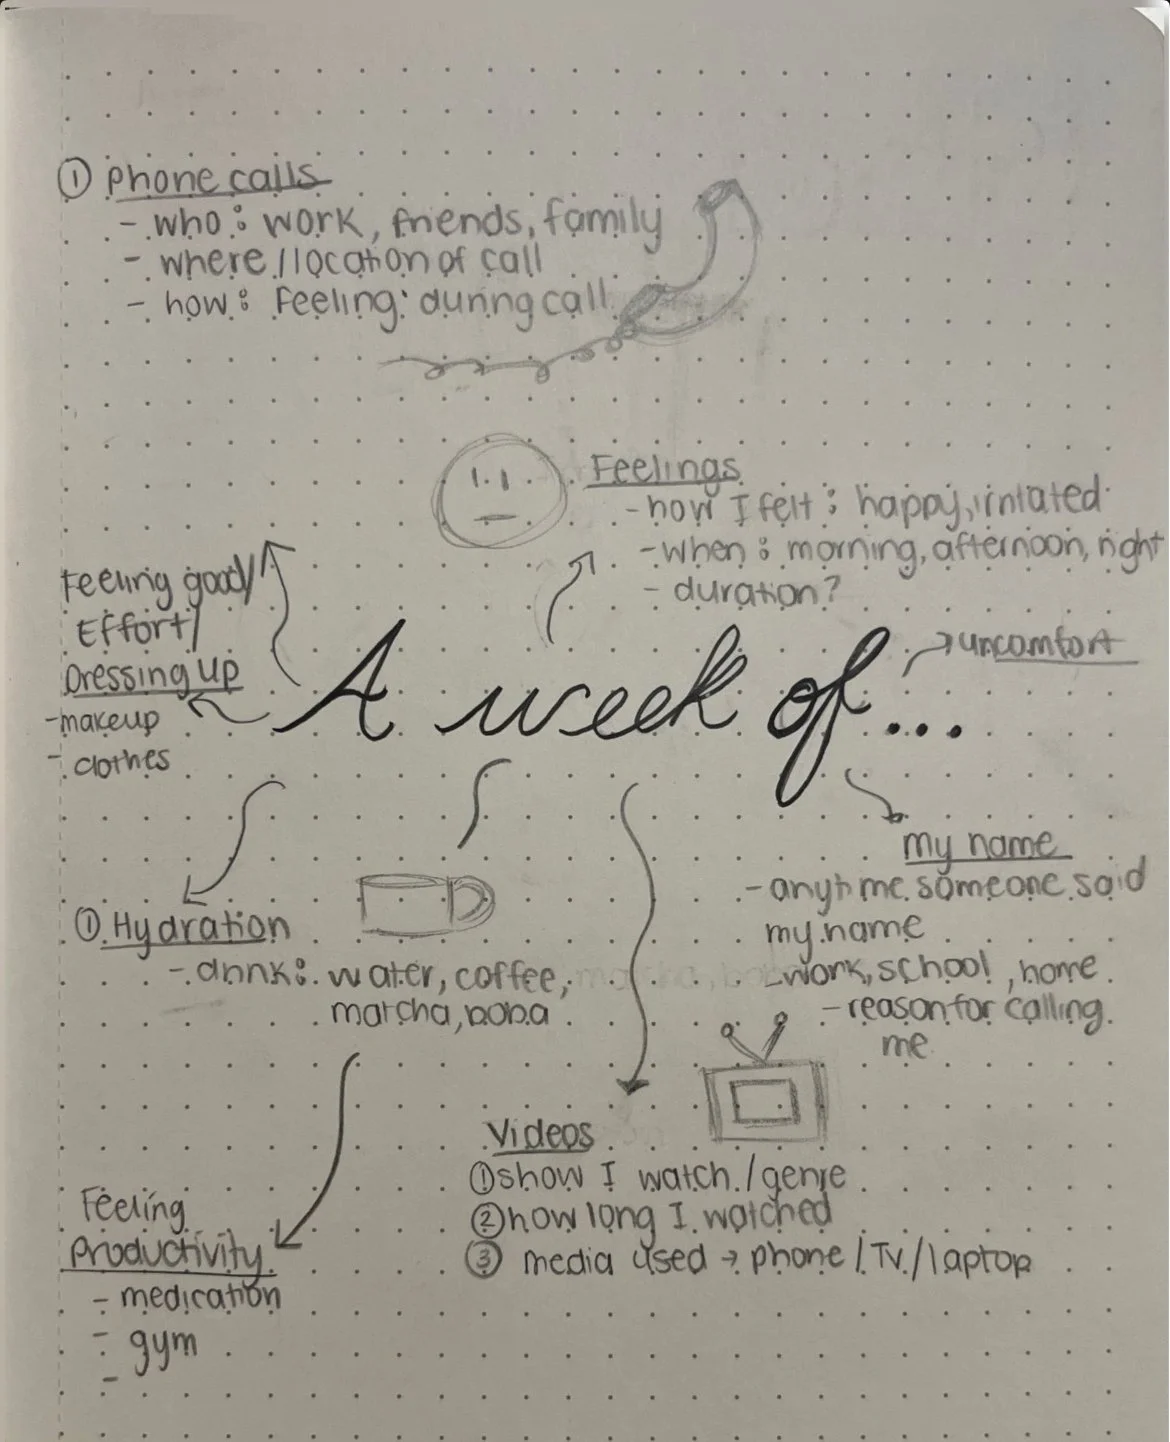 ① Phone calls
- who: work, friends, family
- where/location of call
- how: feeling: during call
Feelings
- how I felt: happy, irritated
- when: morning, afternoon, night
- duration?
Feeling good/
Effort/
Dressing up
- makeup
- clothes
A week of...
uncomfort
my name
- anytime someone said
my name
- work, school, home
- reason for calling
me
① Hydration
- drink: water, coffee,
matcha, boba
Videos
① show I watch/genre
② how long I watched
③ media used → phone/TV/laptop
Feeling
Productivity
- medication
- gym
-